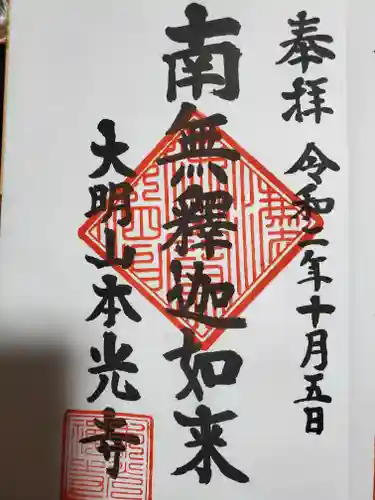 奉拝 令和二年十月五日
南無釋迦如来
大明山本光寺